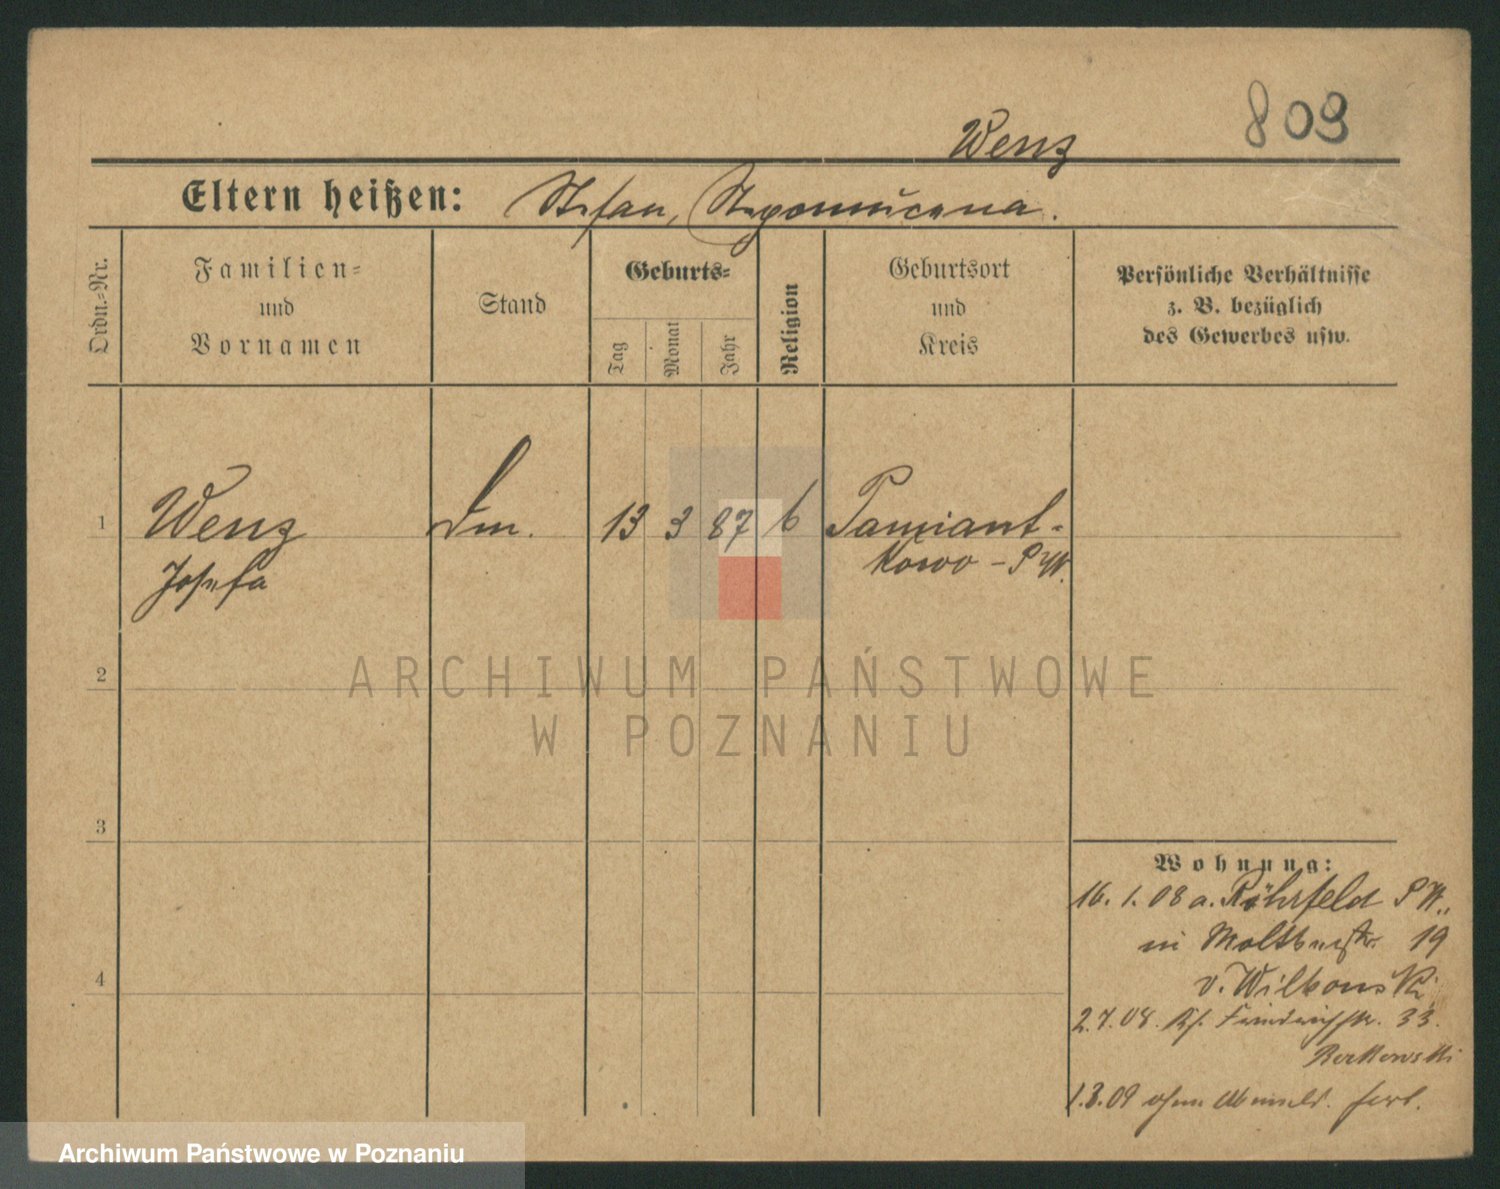 809
Wenz
Eltern heißen: Stefan, Nepomucena.
Ordn.-Nr.
Familien-
und
Vornamen
Stand
Geburts-
Tag
Monat
Jahr
Religion
Geburtsort
und
Kreis
Persönliche Verhältnisse
z. B. bezüglich
des Gewerbes usw.
1 Wenz Dm. 13 3 87 Pamiont-
Josefa kowo - P W.
2
3
4
Wohnung:
16. 1. 08 a. Röhrfeld P W.,
in 19
v. Wilkonski
2.7.08. Friedrichstr. 33.
1.3.09 ohne Abmeld. fort.
ARCHIWUM PAŃSTWOWE
W POZNANIU
Archiwum Państwowe w Poznaniu